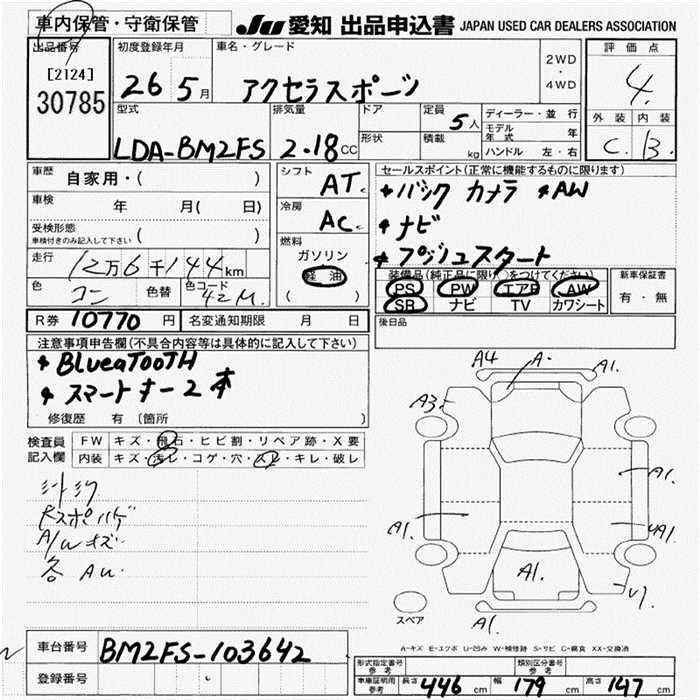 車内保管・守衛保管
JU 愛知 出品申込書 JAPAN USED CAR DEALERS ASSOCIATION
出品番号
[2124]
30785
初度登録年月
26 5 月
車名・グレード
アクセラスポーツ
2WD
・
4WD
評価点
4.
外装 内装
C. B.
型式
LDA-BM2FS
排気量
2.18 CC
ドア
形状
定員
5 人
積載
kg
ディーラー・並行
モデル年式 年
ハンドル 左・右
車歴 自家用・( )
車検 年 月( 日)
受検形態
車検付きのみ記入して下さい ( )
走行 12万6千144 km
色 コン 色替 色コード 42M.
シフト
AT
冷房
AC
燃料
ガソリン
軽油
( )
セールスポイント(正常に機能するものに限ります)
*バック カメラ *AW
*ナビ
*プッシュスタート
装備品(純正品に限り○をつけてください)
PS PW エアB AW
SR ナビ TV カワシート
新車保証書
有・無
R券 10770 円
名変通知期限 月 日
後日品
注意事項申告欄(不具合内容等は具体的に記入して下さい)
*BLueaTooTH
*スマートキー2本
修復歴 有 〔箇所 〕
検査員
記入欄
FW キズ・飛石・ヒビ割・リペア跡・X要
内装 キズ・汚レ・コゲ・穴・スレ・キレ・破レ
A/Wキズ
各 AU
A4 A- A1.
A3
A1.
A1.
A1.
A1.
A1.
スペア
A-キズ E-エクボ U-凹み W-補修跡 S-サビ C-腐食 XX-交換済
車台番号 BM2FS-103642
登録番号
形式指定番号
参考
類別区分番号
参考
車庫証明用
参考
長さ 446 cm 幅 179 cm 高さ 147 cm